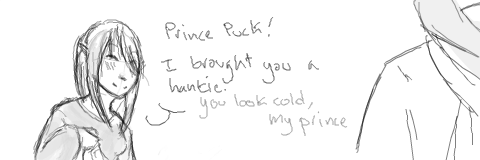 Prince Puck!
I brought you a
hankie!
you look cold,
my prince